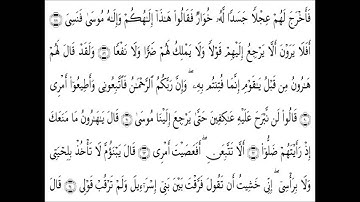 فَأَخْرَجَ لَهُمْ عِجْلًا جَسَدًا لَّهُۥ خُوَارٌ فَقَالُوا۟ هَٰذَآ إِلَٰهُكُمْ وَإِلَٰهُ مُوسَىٰ فَنَسِىَ
أَفَلَا يَرَوْنَ أَلَّا يَرْجِعُ إِلَيْهِمْ قَوْلًا وَلَا يَمْلِكُ لَهُمْ ضَرًّا وَلَا نَفْعًا وَلَقَدْ قَالَ لَهُمْ
هَٰرُونُ مِن قَبْلُ يَٰقَوْمِ إِنَّمَا فُتِنتُم بِهِۦ ۖ وَإِنَّ رَبَّكُمُ ٱلرَّحْمَٰنُ فَٱتَّبِعُونِى وَأَطِيعُوٓا۟ أَمْرِى
قَالُوا۟ لَن نَّبْرَحَ عَلَيْهِ عَٰكِفِينَ حَتَّىٰ يَرْجِعَ إِلَيْنَا مُوسَىٰ قَالَ يَٰهَٰرُونُ مَا مَنَعَكَ
إِذْ رَأَيْتَهُمْ ضَلُّوٓا۟ أَلَّا تَتَّبِعَنِ ۖ أَفَعَصَيْتَ أَمْرِى قَالَ يَبْنَؤُمَّ لَا تَأْخُذْ بِلِحْيَتِى
وَلَا بِرَأْسِىٓ ۖ إِنِّى خَشِيتُ أَن تَقُولَ فَرَّقْتَ بَيْنَ بَنِىٓ إِسْرَٰٓءِيلَ وَلَمْ تَرْقُبْ قَوْلِى قَالَ